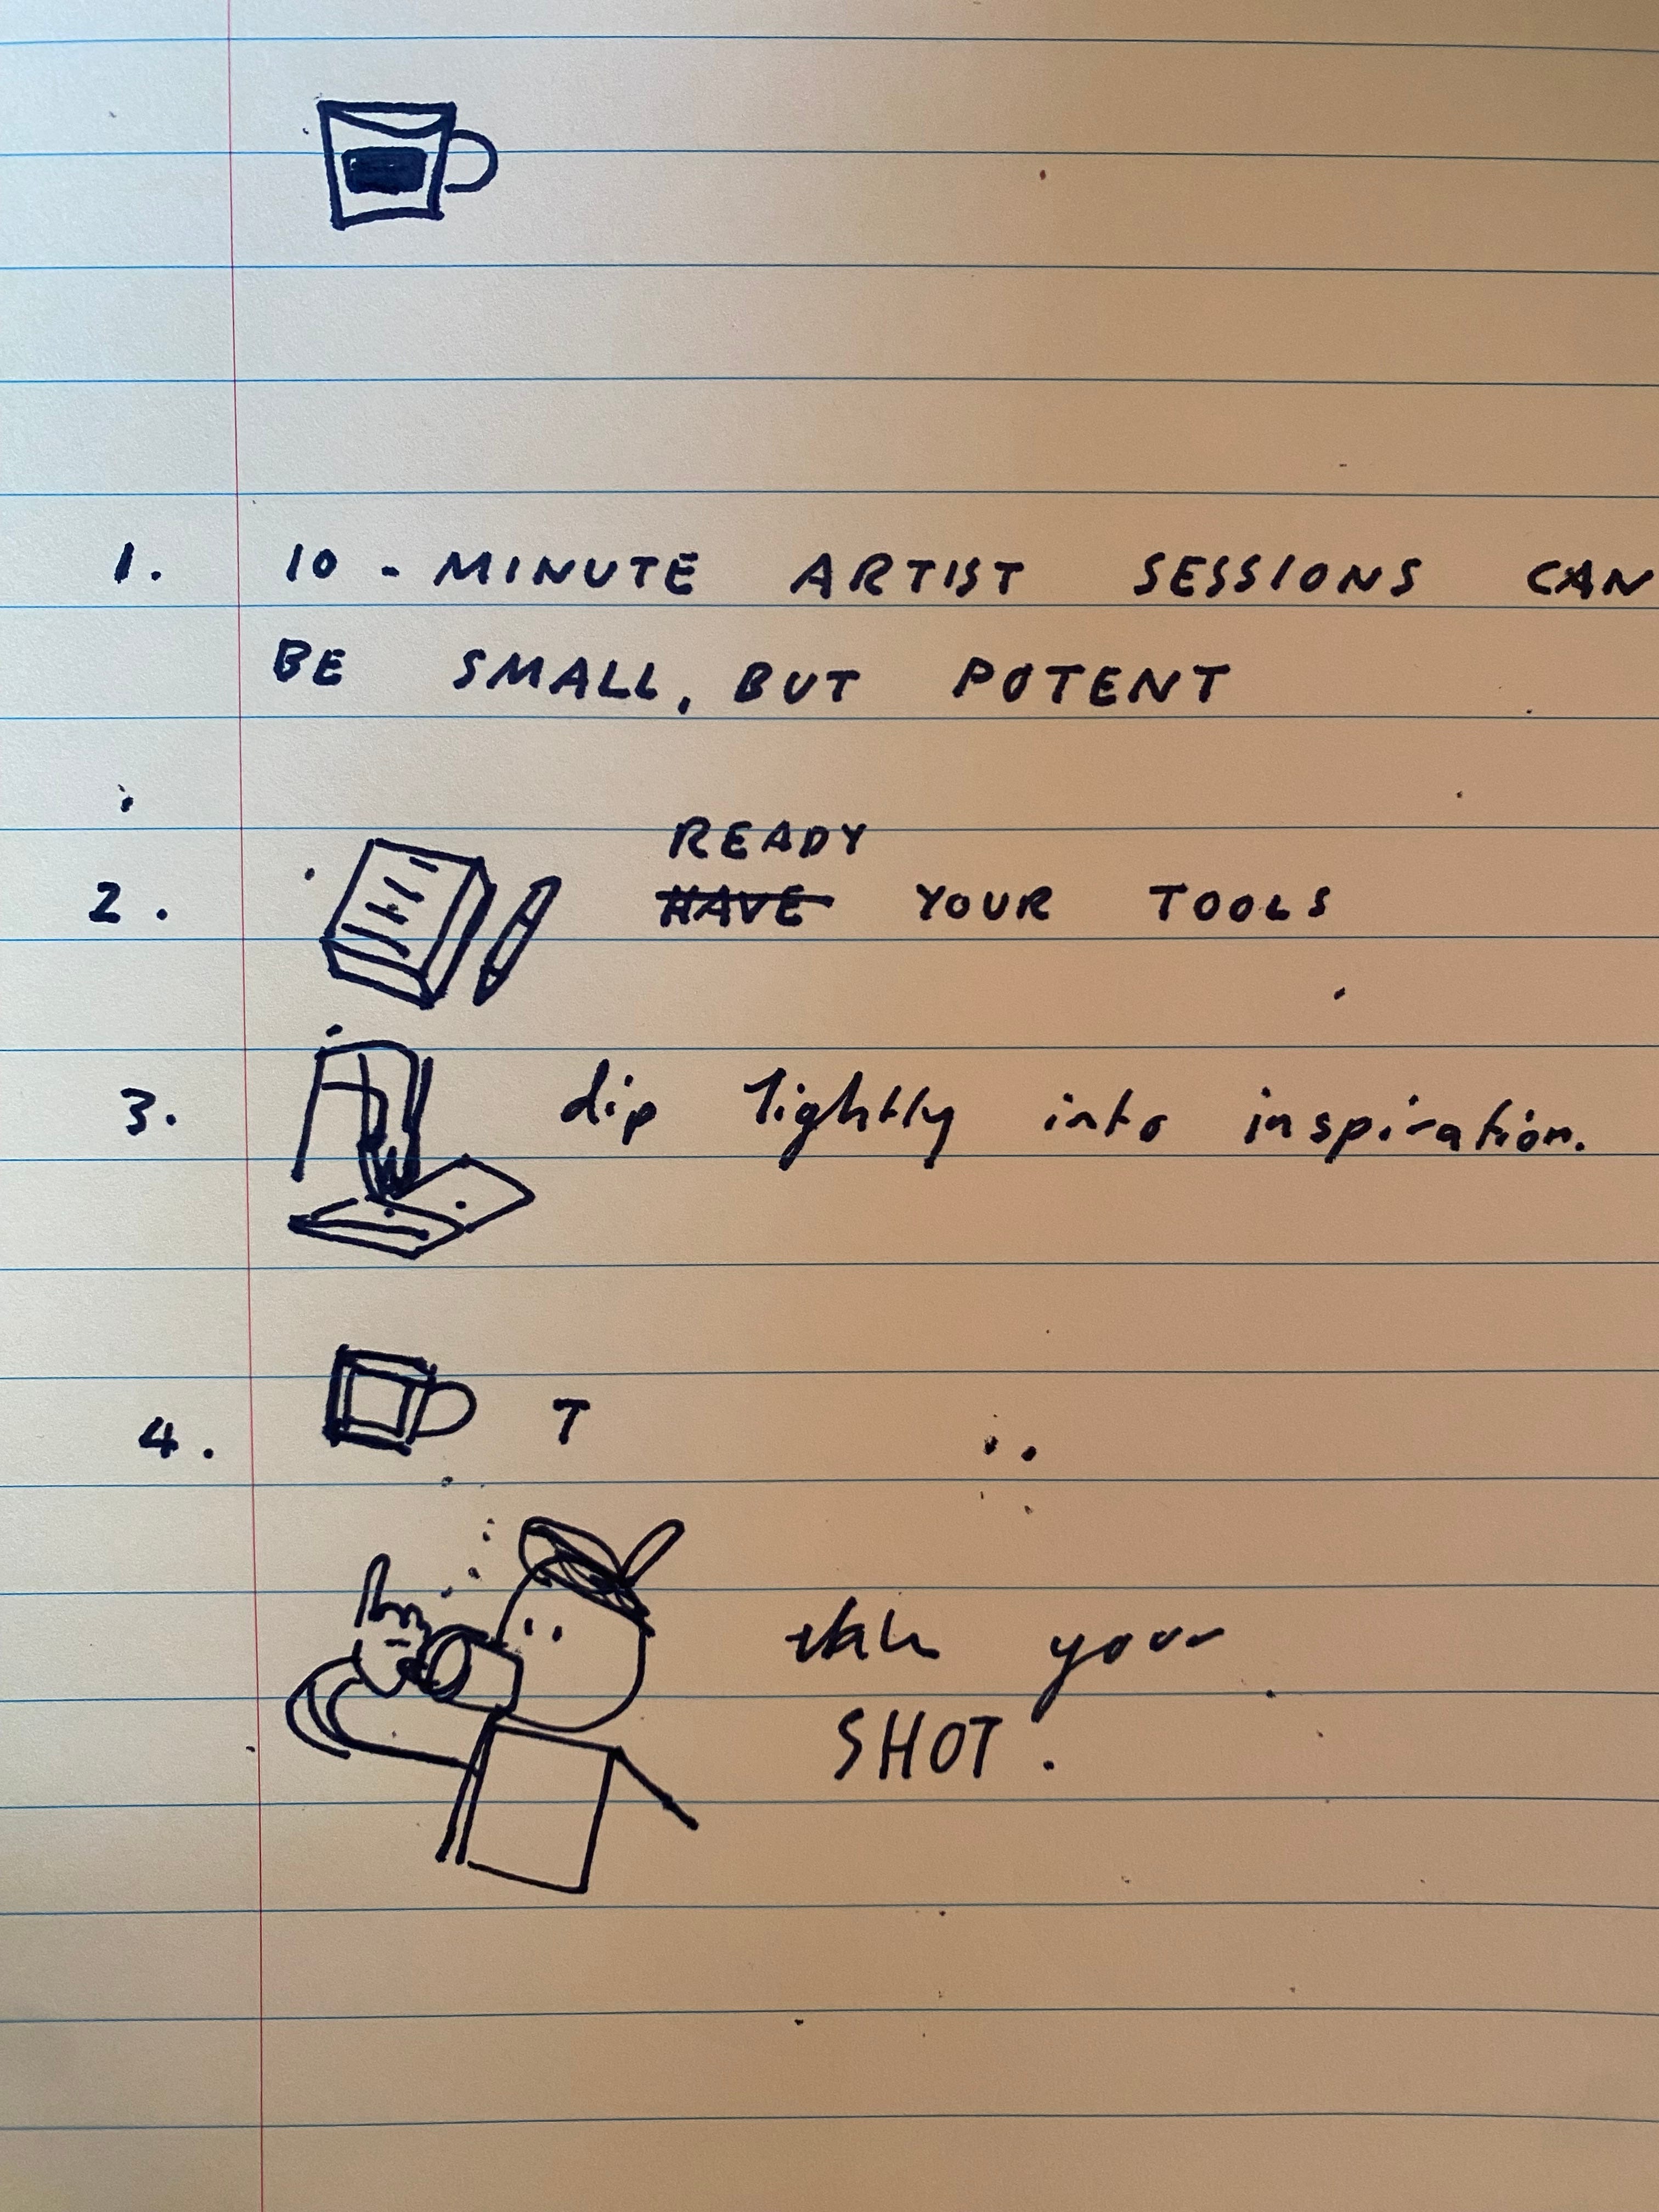 1. 10-MINUTE ARTIST SESSIONS CAN
BE SMALL, BUT POTENT
READY
2. HAVE YOUR TOOLS
3. dip lightly into inspiration.
4. T
your
SHOT.